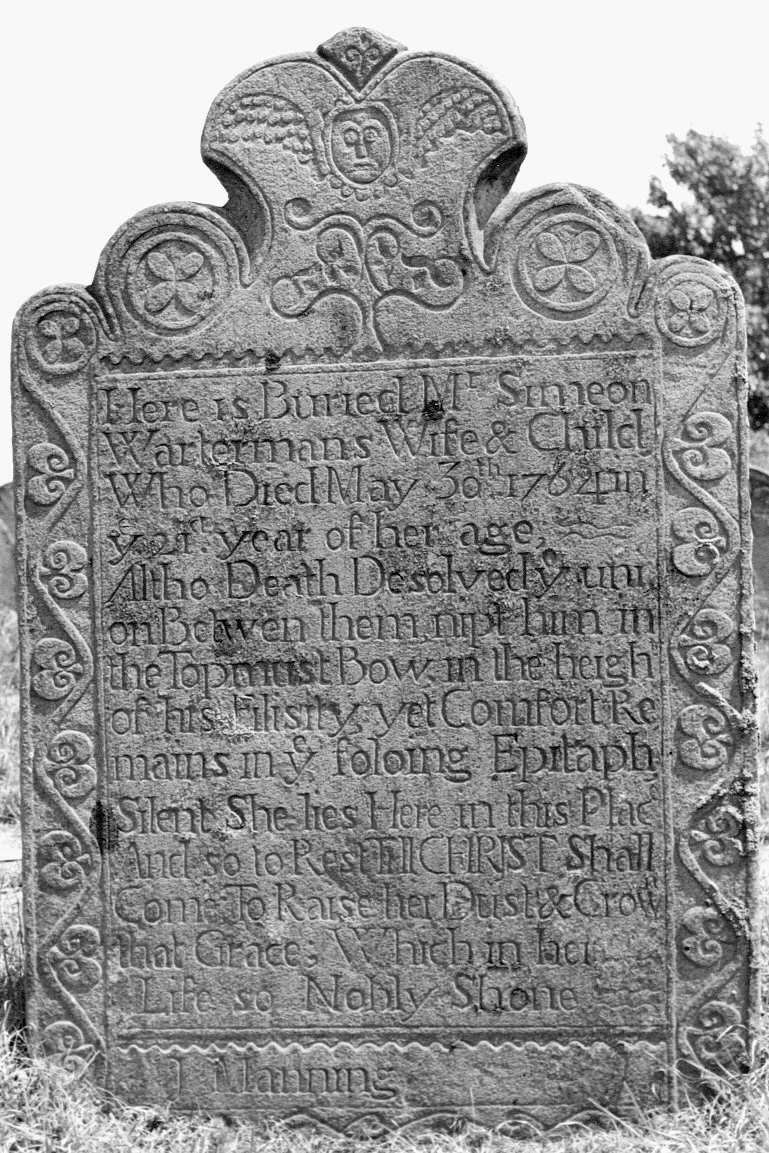 Here is Buried Mr Simeon
Wartermans Wife & Child
Who Died May 30th 1764 in
ye 21st year of her age,
Altho Death Desolved ye uni,
on Betwen them, nipt him in
the Top must Bow, in the heigh
of his Filisity, yet Comfort Re
mains in ye foloing Epitaph
Silent She lies Here in this Place
And so to Rest Till CHRIST Shall
Come To Raise her Dust & Crown
that Grace; Which in her
Life so Nobly Shone
I Manning